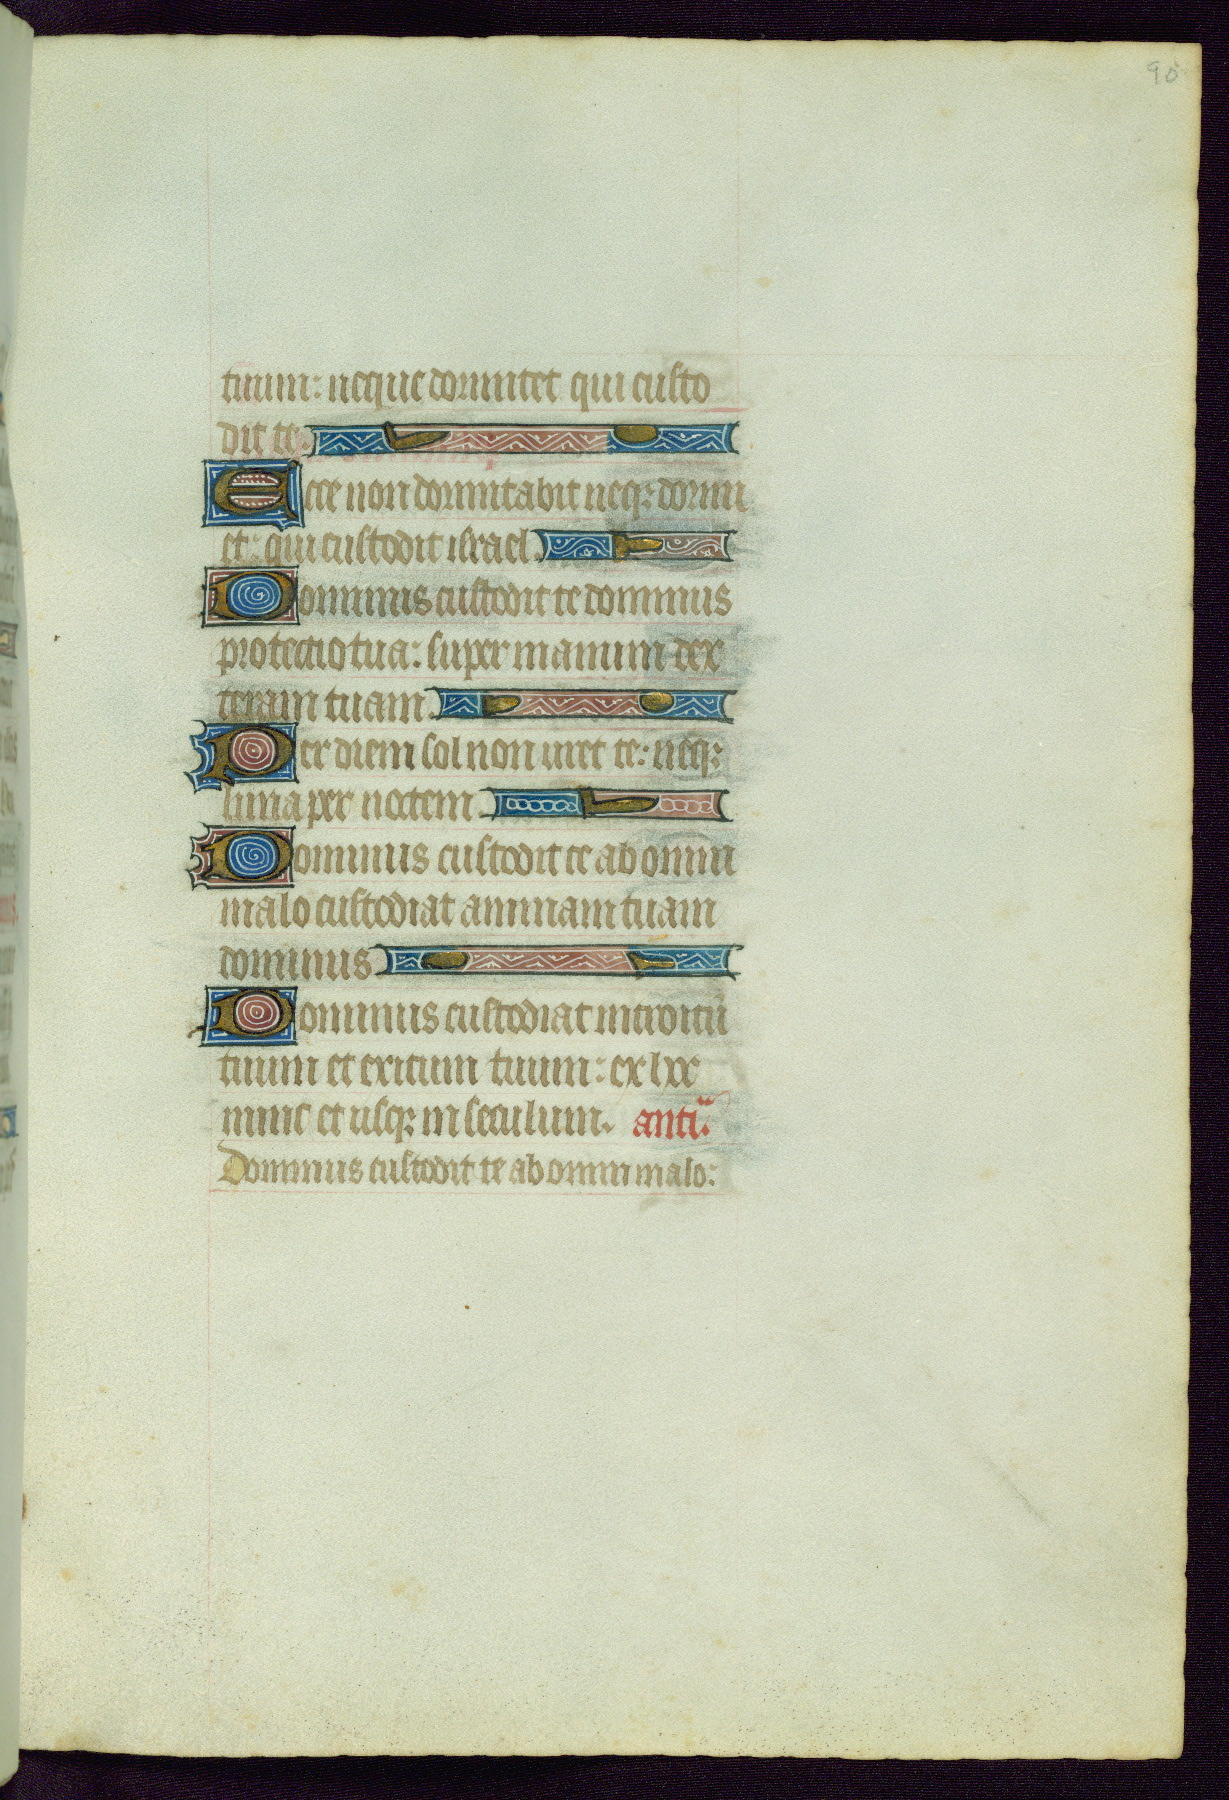 90
tuum: neque dormitet qui custo
dit te.
Ecce non dormitabit neq: dormi
et: qui custodit israel.
Dominus custodit te dominus
protectio tua: super manum dex
teram tuam.
Per diem sol non uret te: neq:
luna per noctem.
Dominus custodit te ab omni
malo custodiat animam tuam
dominus
Dominus custodiat introitū
tuum et exitum tuum: ex hoc
nunc et usq: in seculum. anti.
Dominus custodit te ab omni malo: